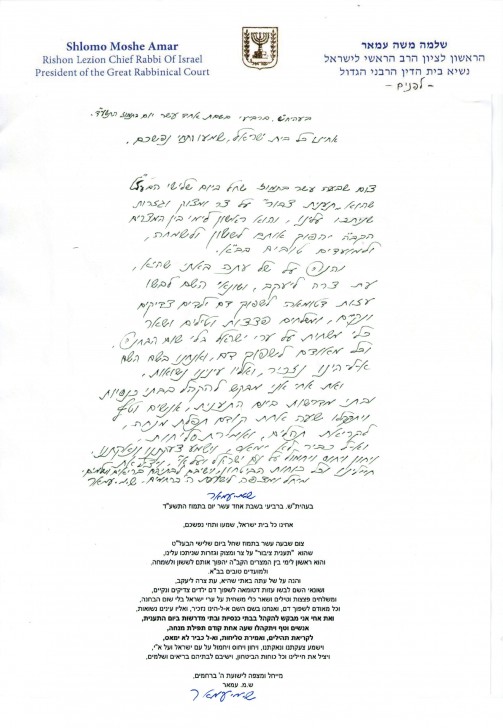 Shlomo Moshe Amar
Rishon Lezion Chief Rabbi Of Israel
President of the Great Rabbinical Court
שלמה משה עמאר
הראשון לציון הרב הראשי לישראל
נשיא בית הדין הרבני הגדול
- לפנים -
בעהית"ש. ברביעי בשבת אחד עשר יום בתמוז התשע"ד.
אחינו כל בית ישראל, שמעו ותחי נפשכם.
צום שבעה עשר בתמוז שחל ביום שלישי הבעל"ט
שהוא "תענית צבור" על צר ומצוק וגזרות
שניתכו עלינו, והוא ראשון לימי בין המצרים
הקב"ה יהפוך אותם לששון ולשמחה,
ולמועדים טובים בב"א.
והנה על של עתה באתי שהיא,
עת צרה ליעקב, ושונאי השם לבשו
עזות דטומאה לשפוך דם ילדים צדיקים
ונקיים, ומשלחים פצצות וטילים ושאר
כלי משחית על ערי ישראל בלי שום הבחנה,
וכל מאודם לשפוך דם, ואנחנו בשם השם
א-להינו נזכיר, ואליו עינינו נשואות,
ואת אחי אני מבקש להקהל בבתי כנסיות
ובתי מדרשות ביום התענית, אנשים וטף
ויתקהלו שעה אחת קודם תפלת מנחה,
לקריאת תהלים, ואמירת סליחות,
וא-ל כביר לא ימאס, וישמע צעקתנו ונאקתנו,
ויחון ויחוס ויחמול על עם ישראל ועל א"י, ויציל את
חיילינו וכל כוחות הבטחון, וישיבם לבתיהם בריאים ושלמים.
מיחל ומצפה לישועת ה' ברחמים. ש.מ. עמאר
בעהית"ש. ברביעי בשבת אחד עשר יום בתמוז התשע"ד
אחינו כל בית ישראל, שמעו ותחי נפשכם,
צום שבעה עשר בתמוז שחל ביום שלישי הבעל"ט
שהוא "תענית ציבור" על צר ומצוק וגזרות שניתכו עלינו,
והוא ראשון לימי בין המצרים הקב"ה יהפוך אותם לששון ולשמחה,
ולמועדים טובים בב"א.
והנה על של עתה באתי שהיא, עת צרה ליעקב,
ושונאי השם לבשו עזות דטומאה לשפוך דם ילדים צדיקים ונקיים,
ומשלחים פצצות וטילים ושאר כלי משחית על ערי ישראל בלי שום הבחנה,
וכל מאודם לשפוך דם, ואנחנו בשם השם א-ל-הינו נזכיר, ואליו עינים נשואות,
ואת אחי אני מבקש להקהל בבתי כנסיות ובתי מדרשות ביום התענית,
אנשים וטף ויתקהלו שעה אחת קודם תפילת מנחה,
לקריאת תהילים, ואמירת סליחות, וא-ל כביר לא ימאס,
וישמע צעקתנו ונאקתנו, ויחון ויחוס ויחמול על עם ישראל ועל א"י,
ויציל את חיילינו וכל כוחות הביטחון, וישיבם לבתיהם בריאים ושלמים.
מייחל ומצפה לישועת ה' ברחמים,
ש.מ. עמאר